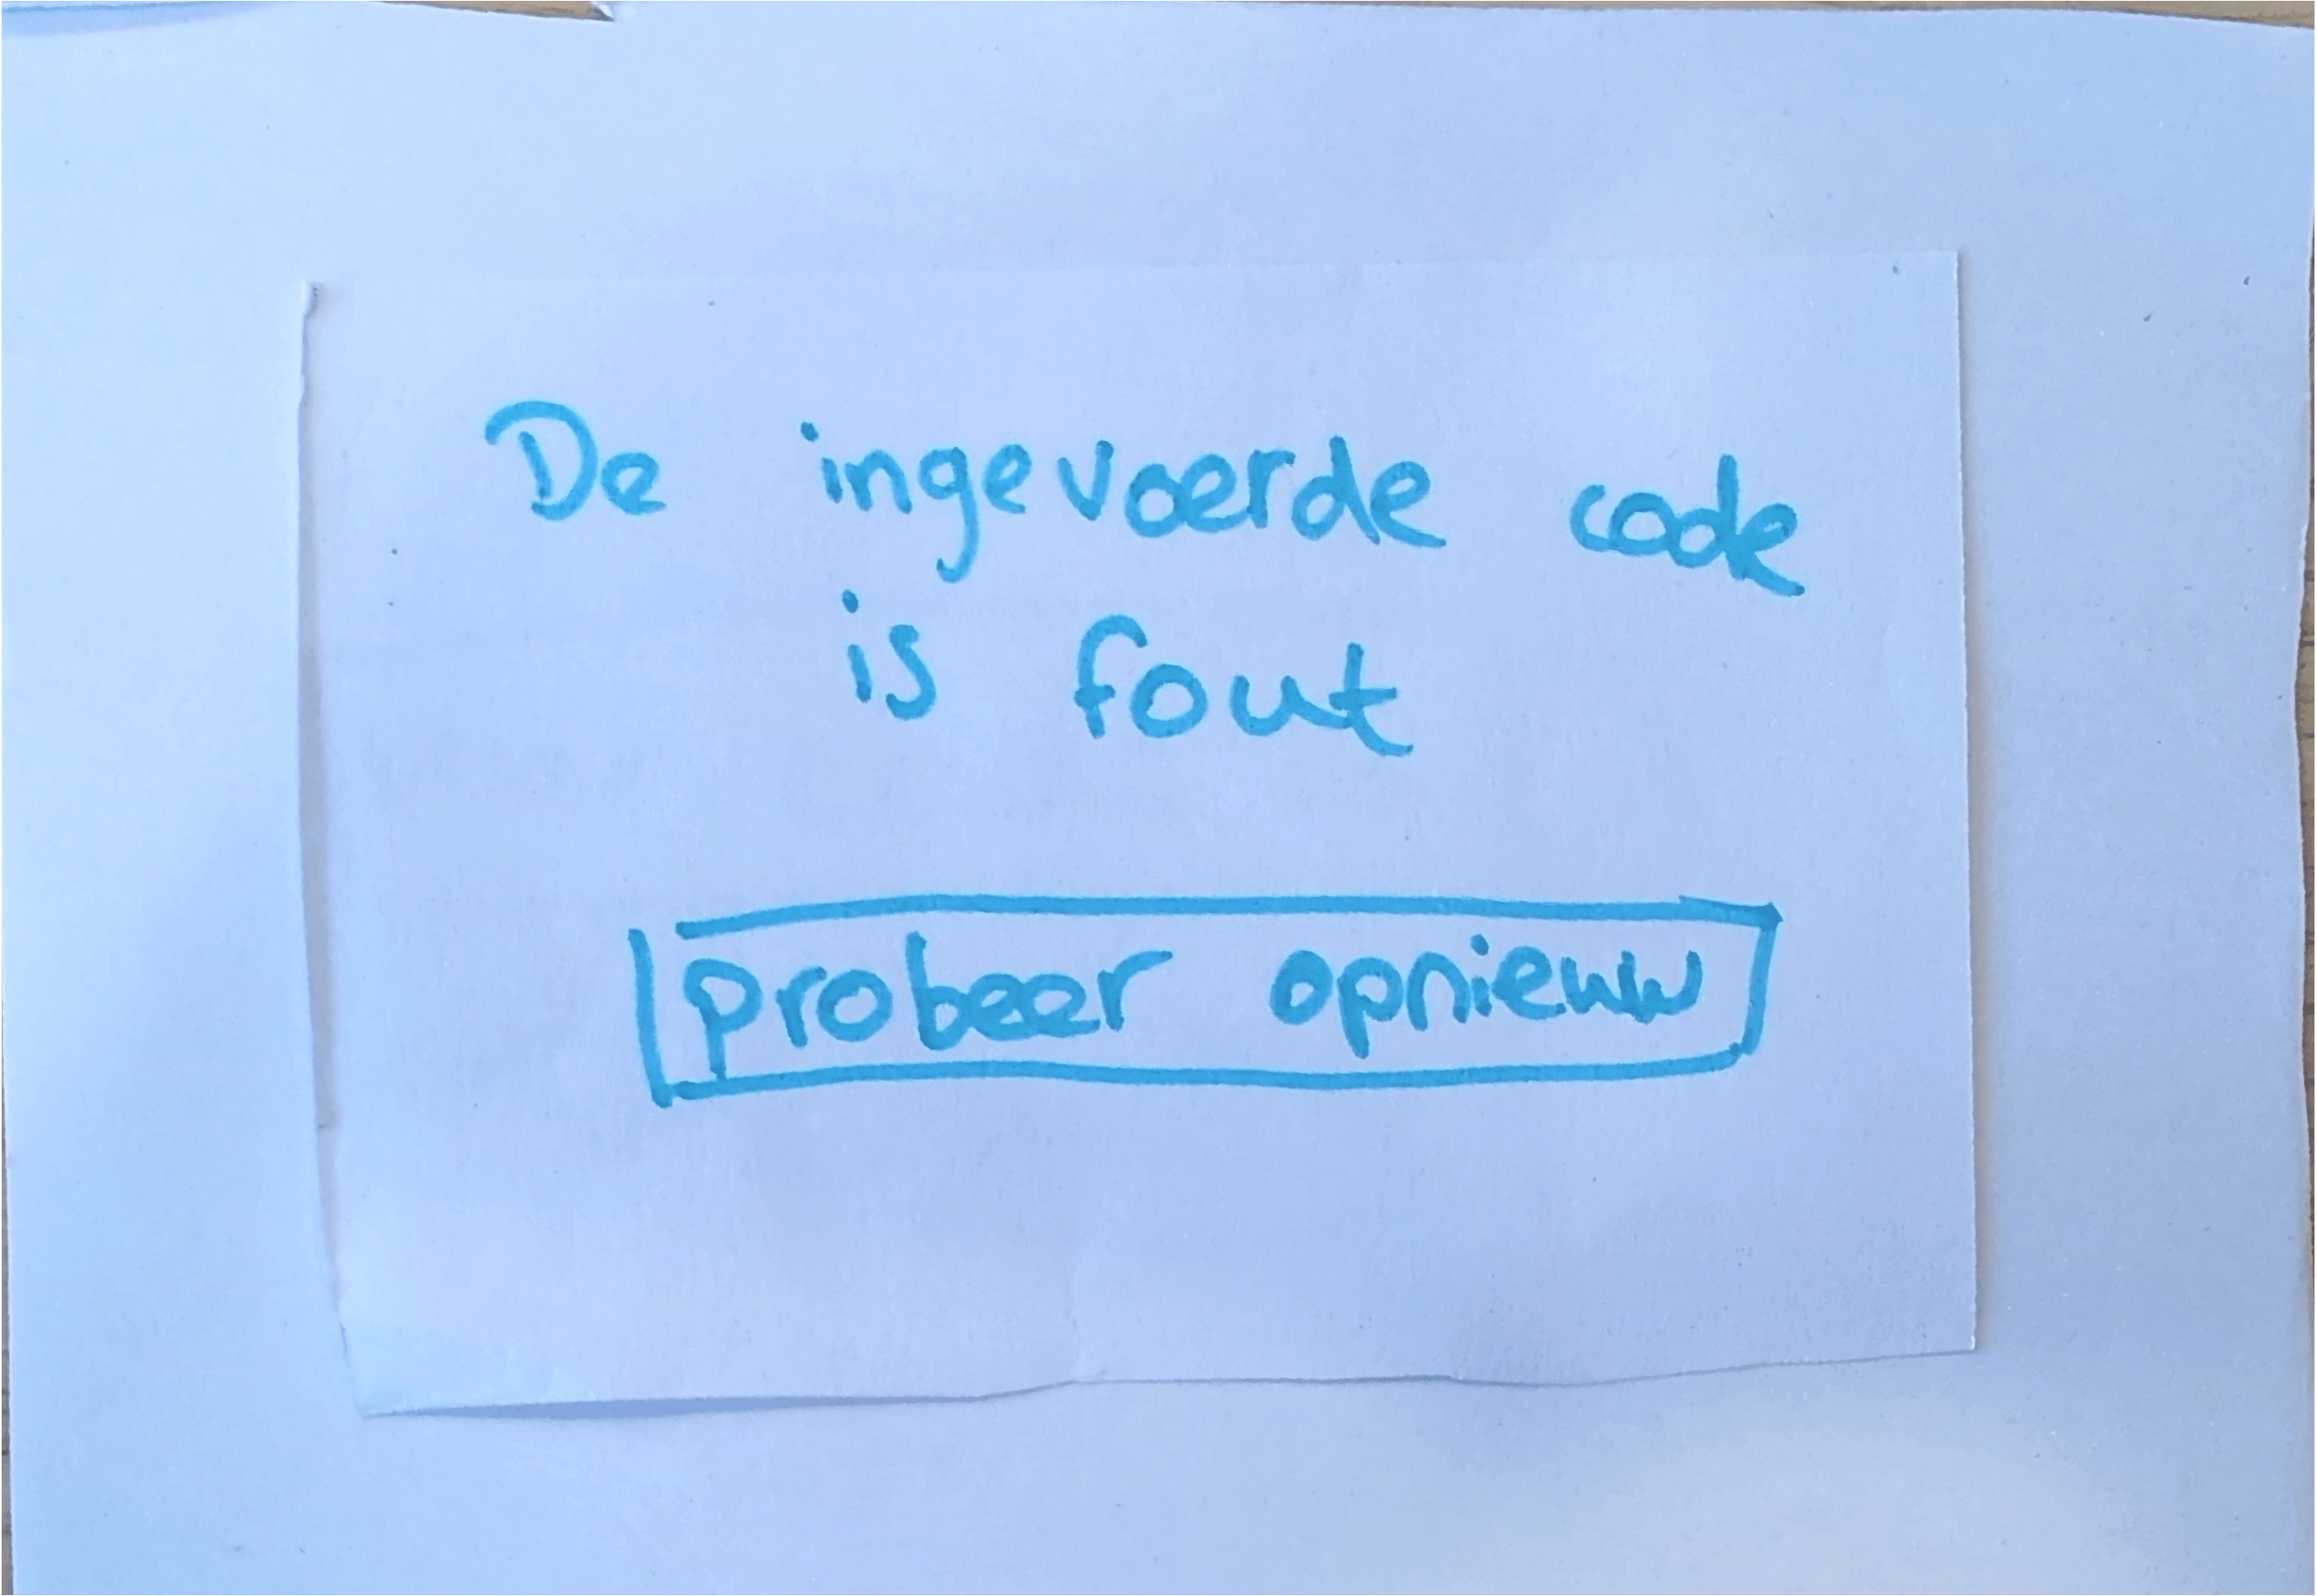 De ingevoerde code
is fout
probeer opnieuw